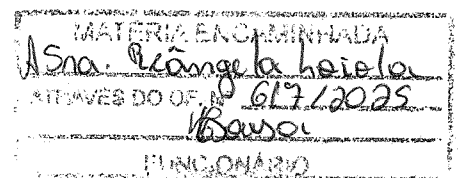 MATÉRIA ENCAMINHADA
A Sra. Rosângela Loiola
ATRAVÉS DO OF. Nº 617/2025
FUNCIONÁRIO